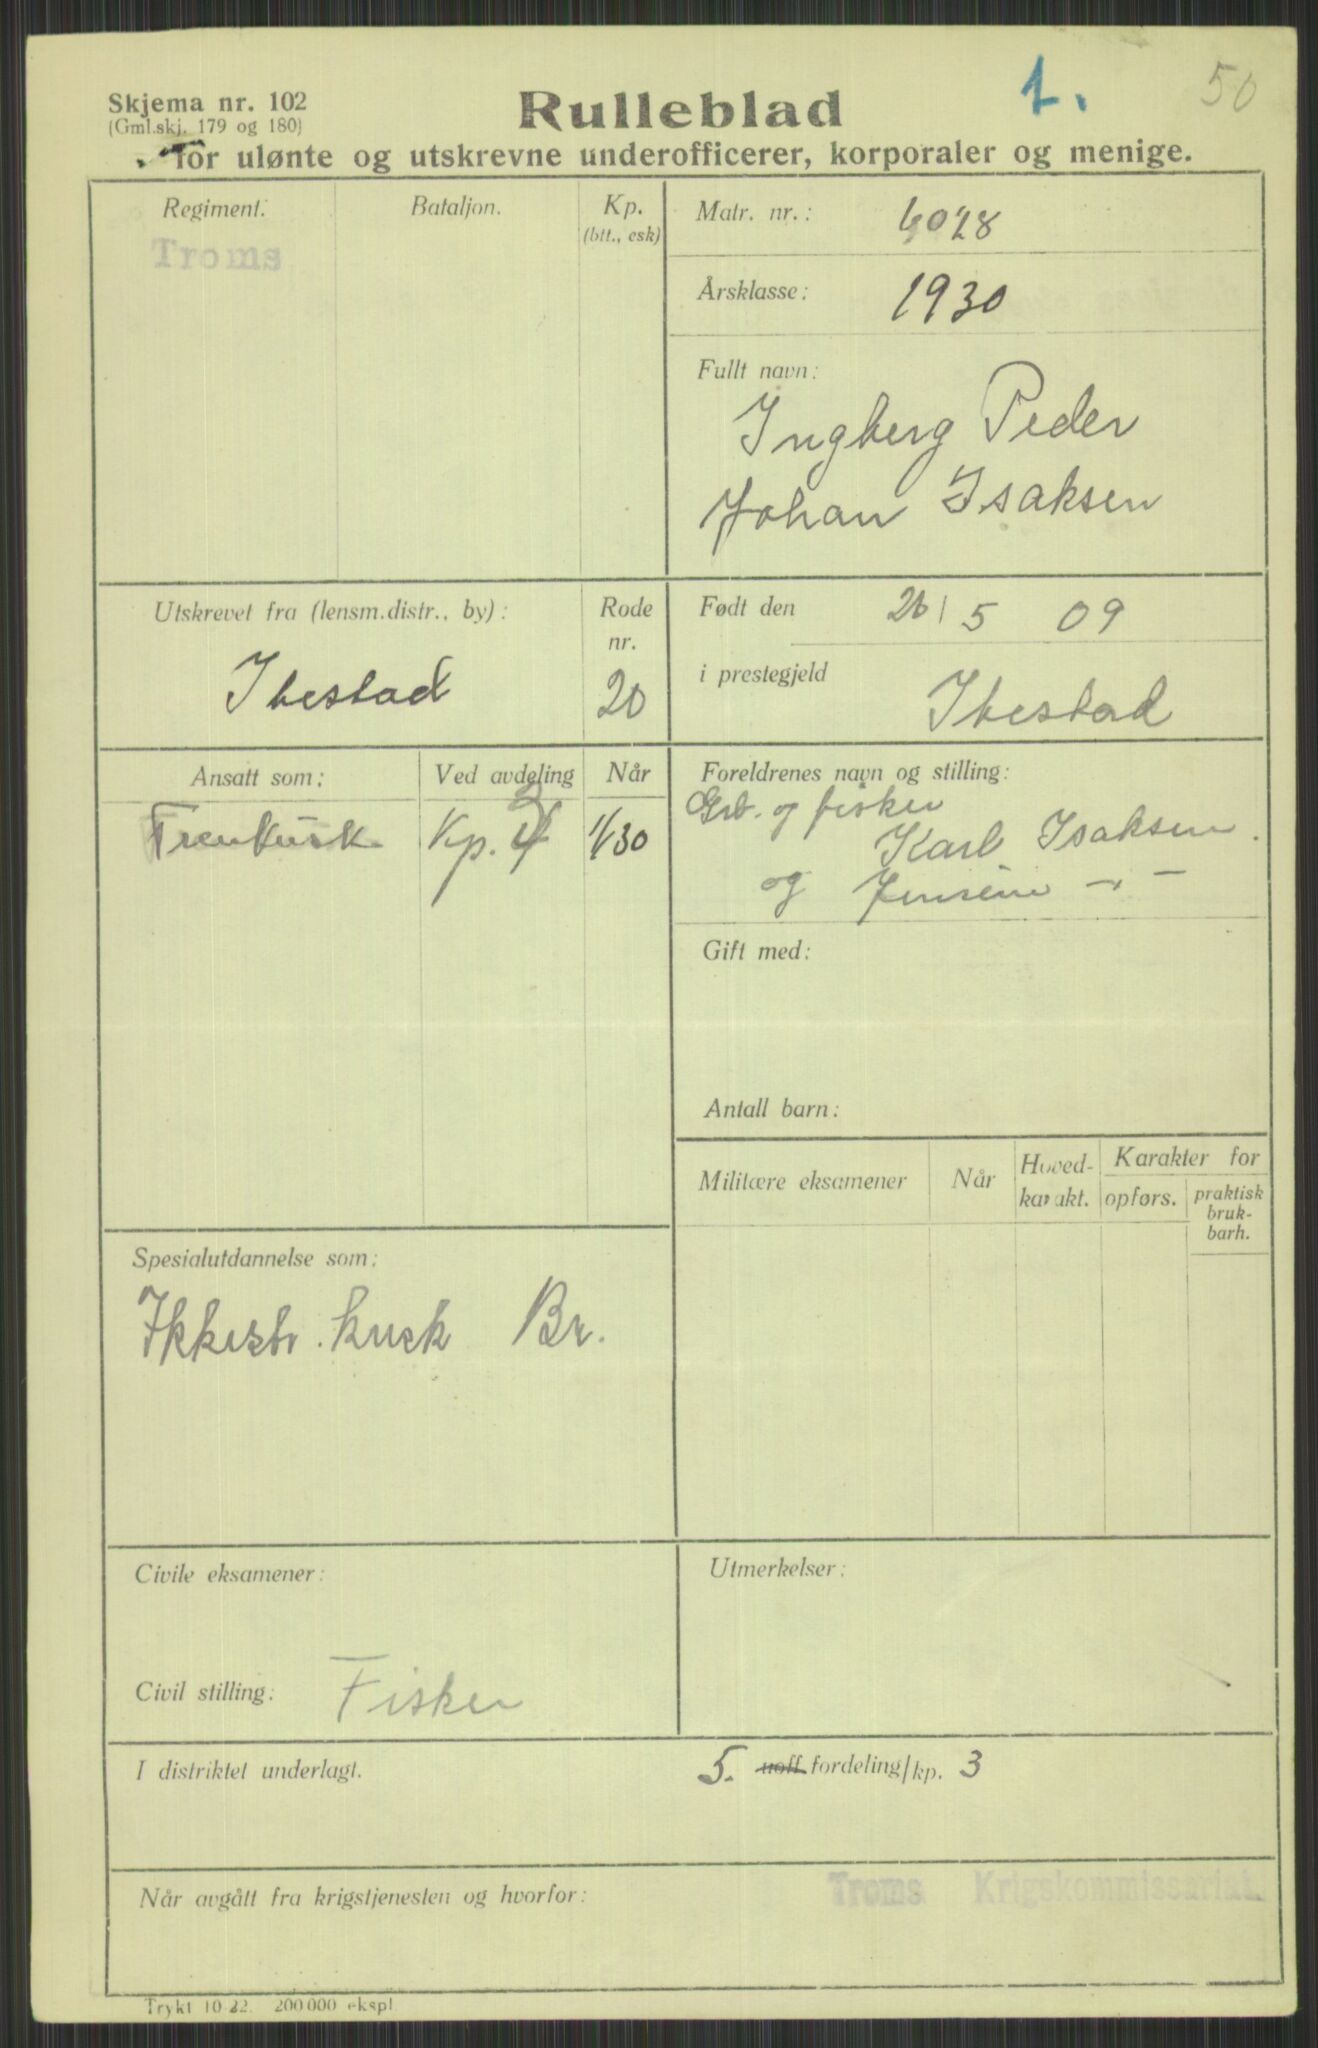 Skjema nr. 102
(Gml.skj. 179 og 180)
Rulleblad
1.
50
for ulønte og utskrevne underofficerer, korporaler og menige.
Regiment.
Bataljon.
Kp.
(btt., esk)
Troms
Matr. nr.:
6028
Årsklasse:
1930
Fullt navn:
Ingberg Peder
Johan Isaksen
Utskrevet fra (lensm.distr., by):
Rode
nr.
Ibestad
20
Født den
26/5 09
i prestegjeld
Ibestad
Ansatt som:
Ved avdeling
Når
Trenkusk
Kp.
1/1 30
Foreldrenes navn og stilling:
Grb. og fisker
Karl Isaksen
og Jensine — " —
Gift med:
Antall barn:
Militære eksamener
Når
Hoved-
karakt.
Karakter for
opførs.
praktisk
bruk-
barh.
Spesialutdannelse som:
Ikkestr. kusk Br.
Civile eksamener:
Utmerkelser:
Civil stilling:
Fisker
I distriktet underlagt.
5. uoff fordeling/kp. 3
Når avgått fra krigstjenesten og hvorfor:
Troms Krigskommissariat.
Trykt 10-22. 200000 ekspl